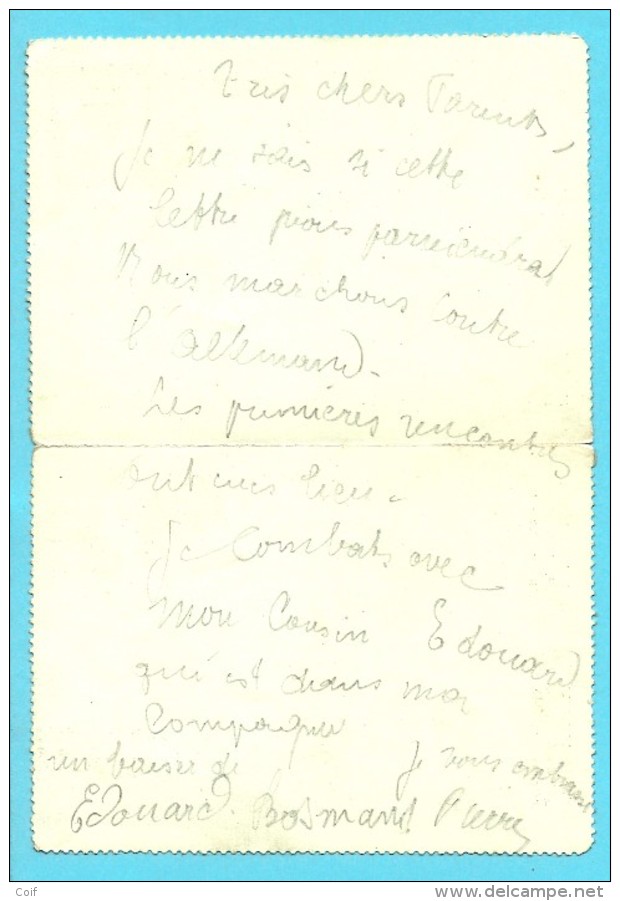 Très chers Parents,
Je ne sais si cette
lettre vous parviendrat
Nous marchons contre
l'allemand.
Les premières rencontres
ont eus lieu.
Je combats avec
mon cousin Edouard
qui est dans ma
Compagnie
un baiser de Je vous embrasse
Edouard. Bosmans Pierre
Coif
www.delcampe.net